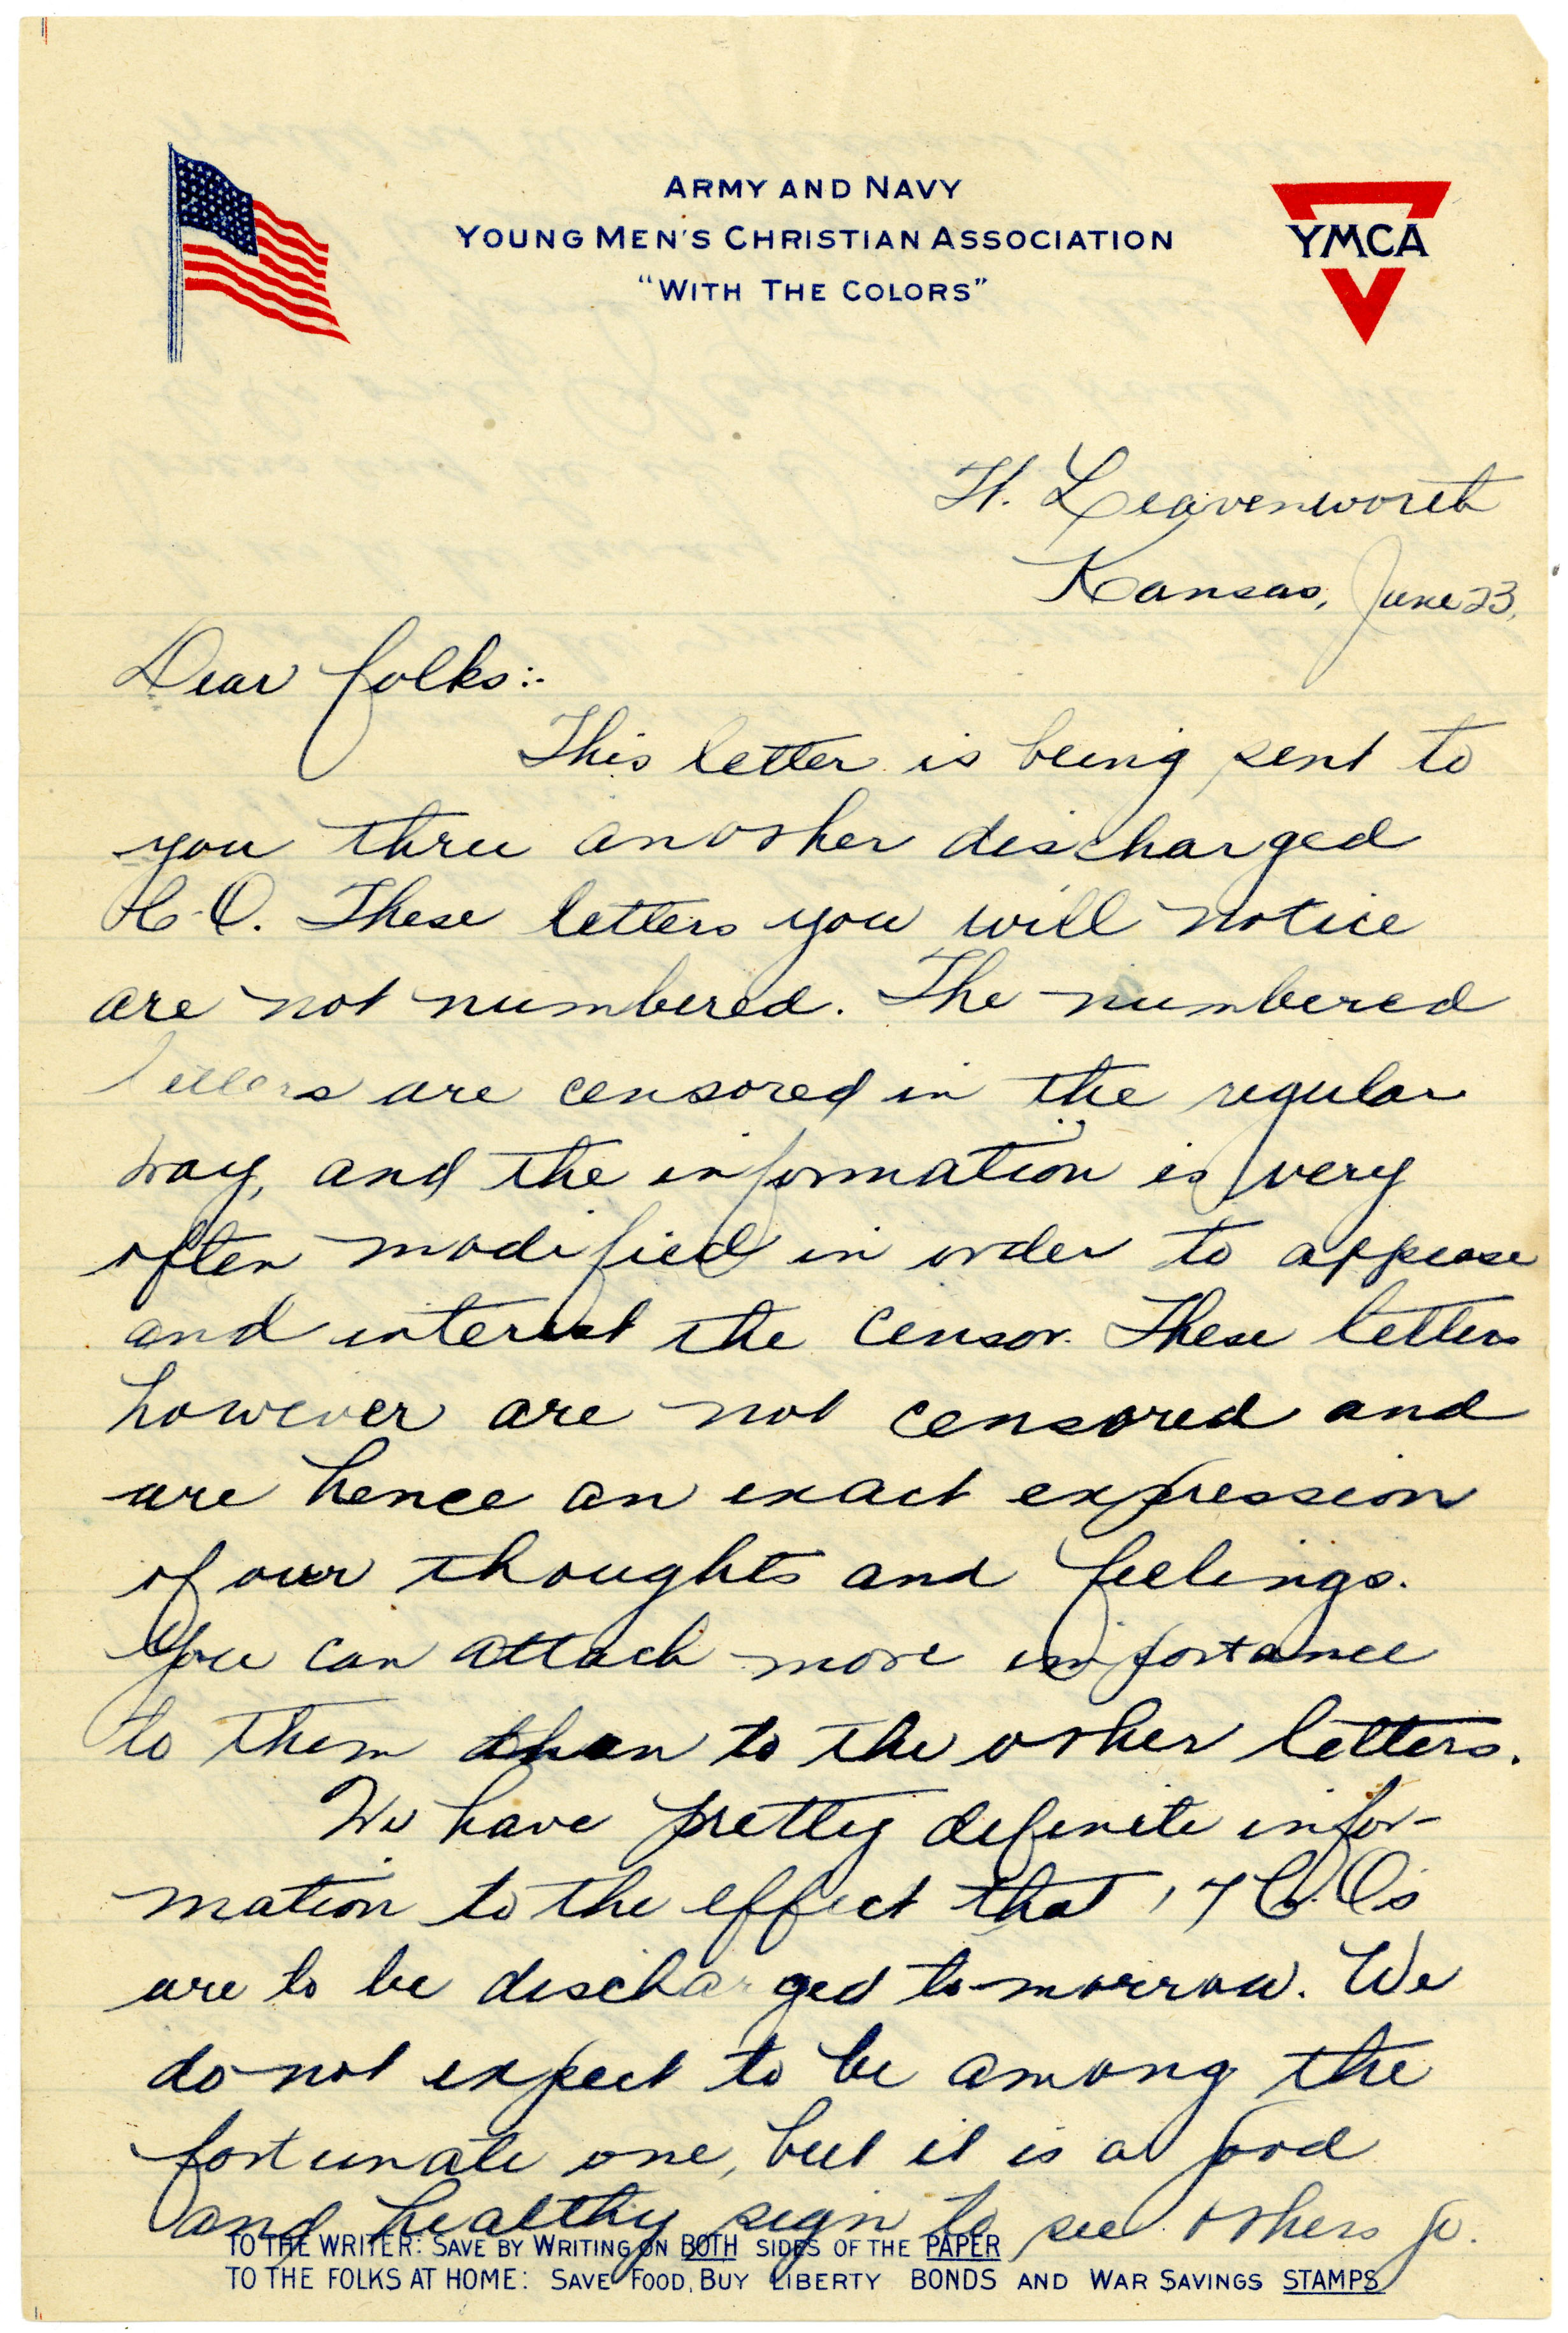 ARMY AND NAVY
YOUNG MEN'S CHRISTIAN ASSOCIATION
"WITH THE COLORS"
YMCA
Ft. Leavenworth
Kansas, June 23,
Dear folks:-
This letter is being sent to
you thru another discharged
C.O. These letters you will notice
are not numbered. The numbered
letters are censored in the regular
way, and the information is very
often modified in order to appease
and interest the censor. These letters
however are not censored and
are hence an exact expression
of our thoughts and feelings.
You can attach more importance
to them than to the other letters.
We have pretty definite infor-
mation to the effect that 17 C.O.'s
are to be discharged to-morrow. We
do not expect to be among the
fortunate one, but it is a good
and healthy sign to see others go.
TO THE WRITER: SAVE BY WRITING ON BOTH SIDES OF THE PAPER
TO THE FOLKS AT HOME: SAVE FOOD, BUY LIBERTY BONDS AND WAR SAVINGS STAMPS